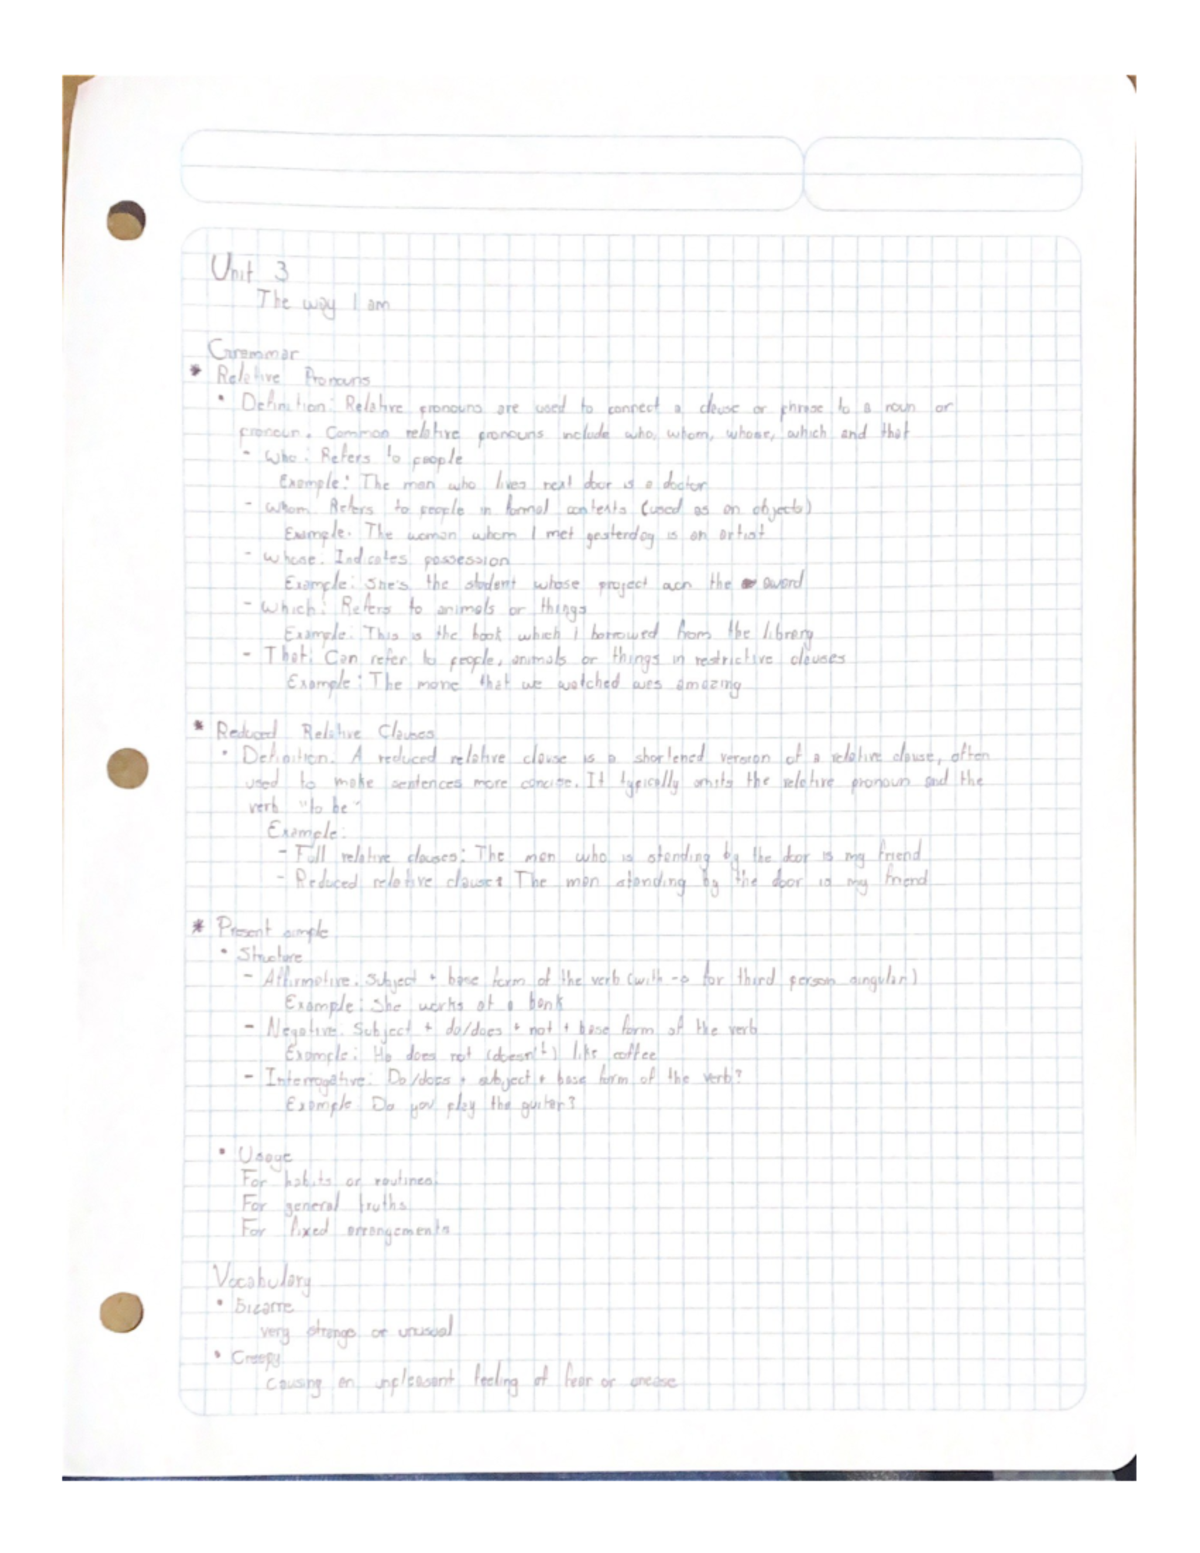 Unit 3
The way I am
Grammar
* Relative Pronouns
• Definition: Relative pronouns are used to connect a clause or phrase to a noun or
pronoun. Common relative pronouns include who, whom, whose, which and that
- Who: Refers to people
Example: The man who lives next door is a doctor
- Whom: Refers to people in formal contexts (used as an objects)
Example: The woman whom I met yesterday is an artist
- Whose: Indicates possession
Example: She's the student whose project won the award
- Which: Refers to animals or things
Example: This is the book which I borrowed from the library
- That: Can refer to people, animals or things in restrictive clauses
Example: The movie that we watched was amazing
* Reduced Relative Clauses
• Definition: A reduced relative clause is a shortened version of a relative clause, often
used to make sentences more concise. It typically omits the relative pronoun and the
verb "to be"
Example:
- Full relative clauses: The man who is standing by the door is my friend
- Reduced relative clause: The man standing by the door is my friend
* Present simple
• Structure
- Affirmative: Subject + base form of the verb (with -s for third person singular)
Example: She works at a bank
- Negative: Subject + do/does + not + base form of the verb
Example: He does not (doesn't) like coffee
- Interrogative: Do/does + subject + base form of the verb?
Example: Do you play the guitar?
• Usage
For habits or routines
For general truths
For fixed arrangements
Vocabulary
• Bizarre
very strange or unusual
• Creepy
Causing an unpleasant feeling of fear or